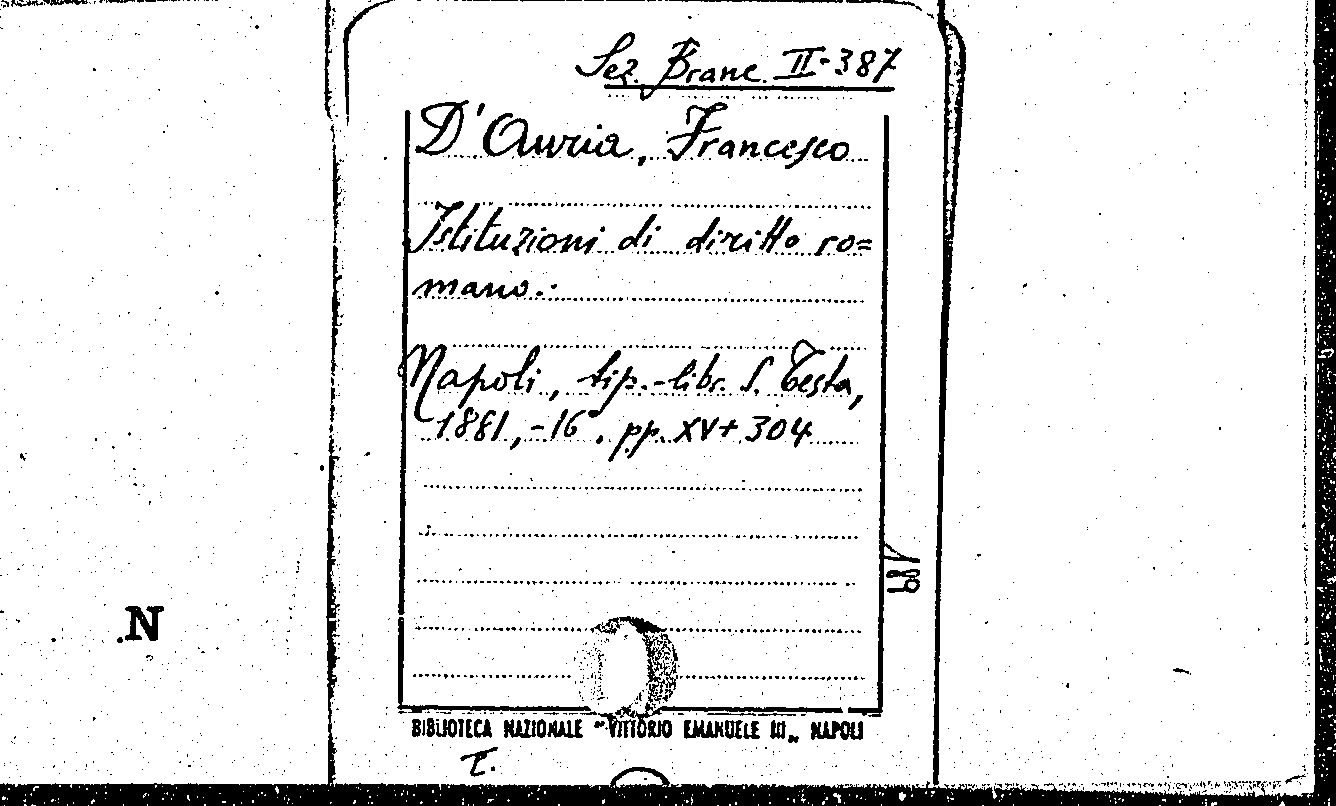 Sez. Branc. II-387
D'Auria, Francesco
Istituzioni di diritto ro=
mano.-
Napoli, tip.-libr. S. Testa,
1881, -16°. pp. XV+304
N
BIBLIOTECA NAZIONALE "VITTORIO EMANUELE III„ NAPOLI